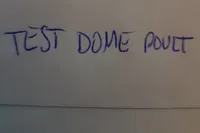 TEST DOME POULT